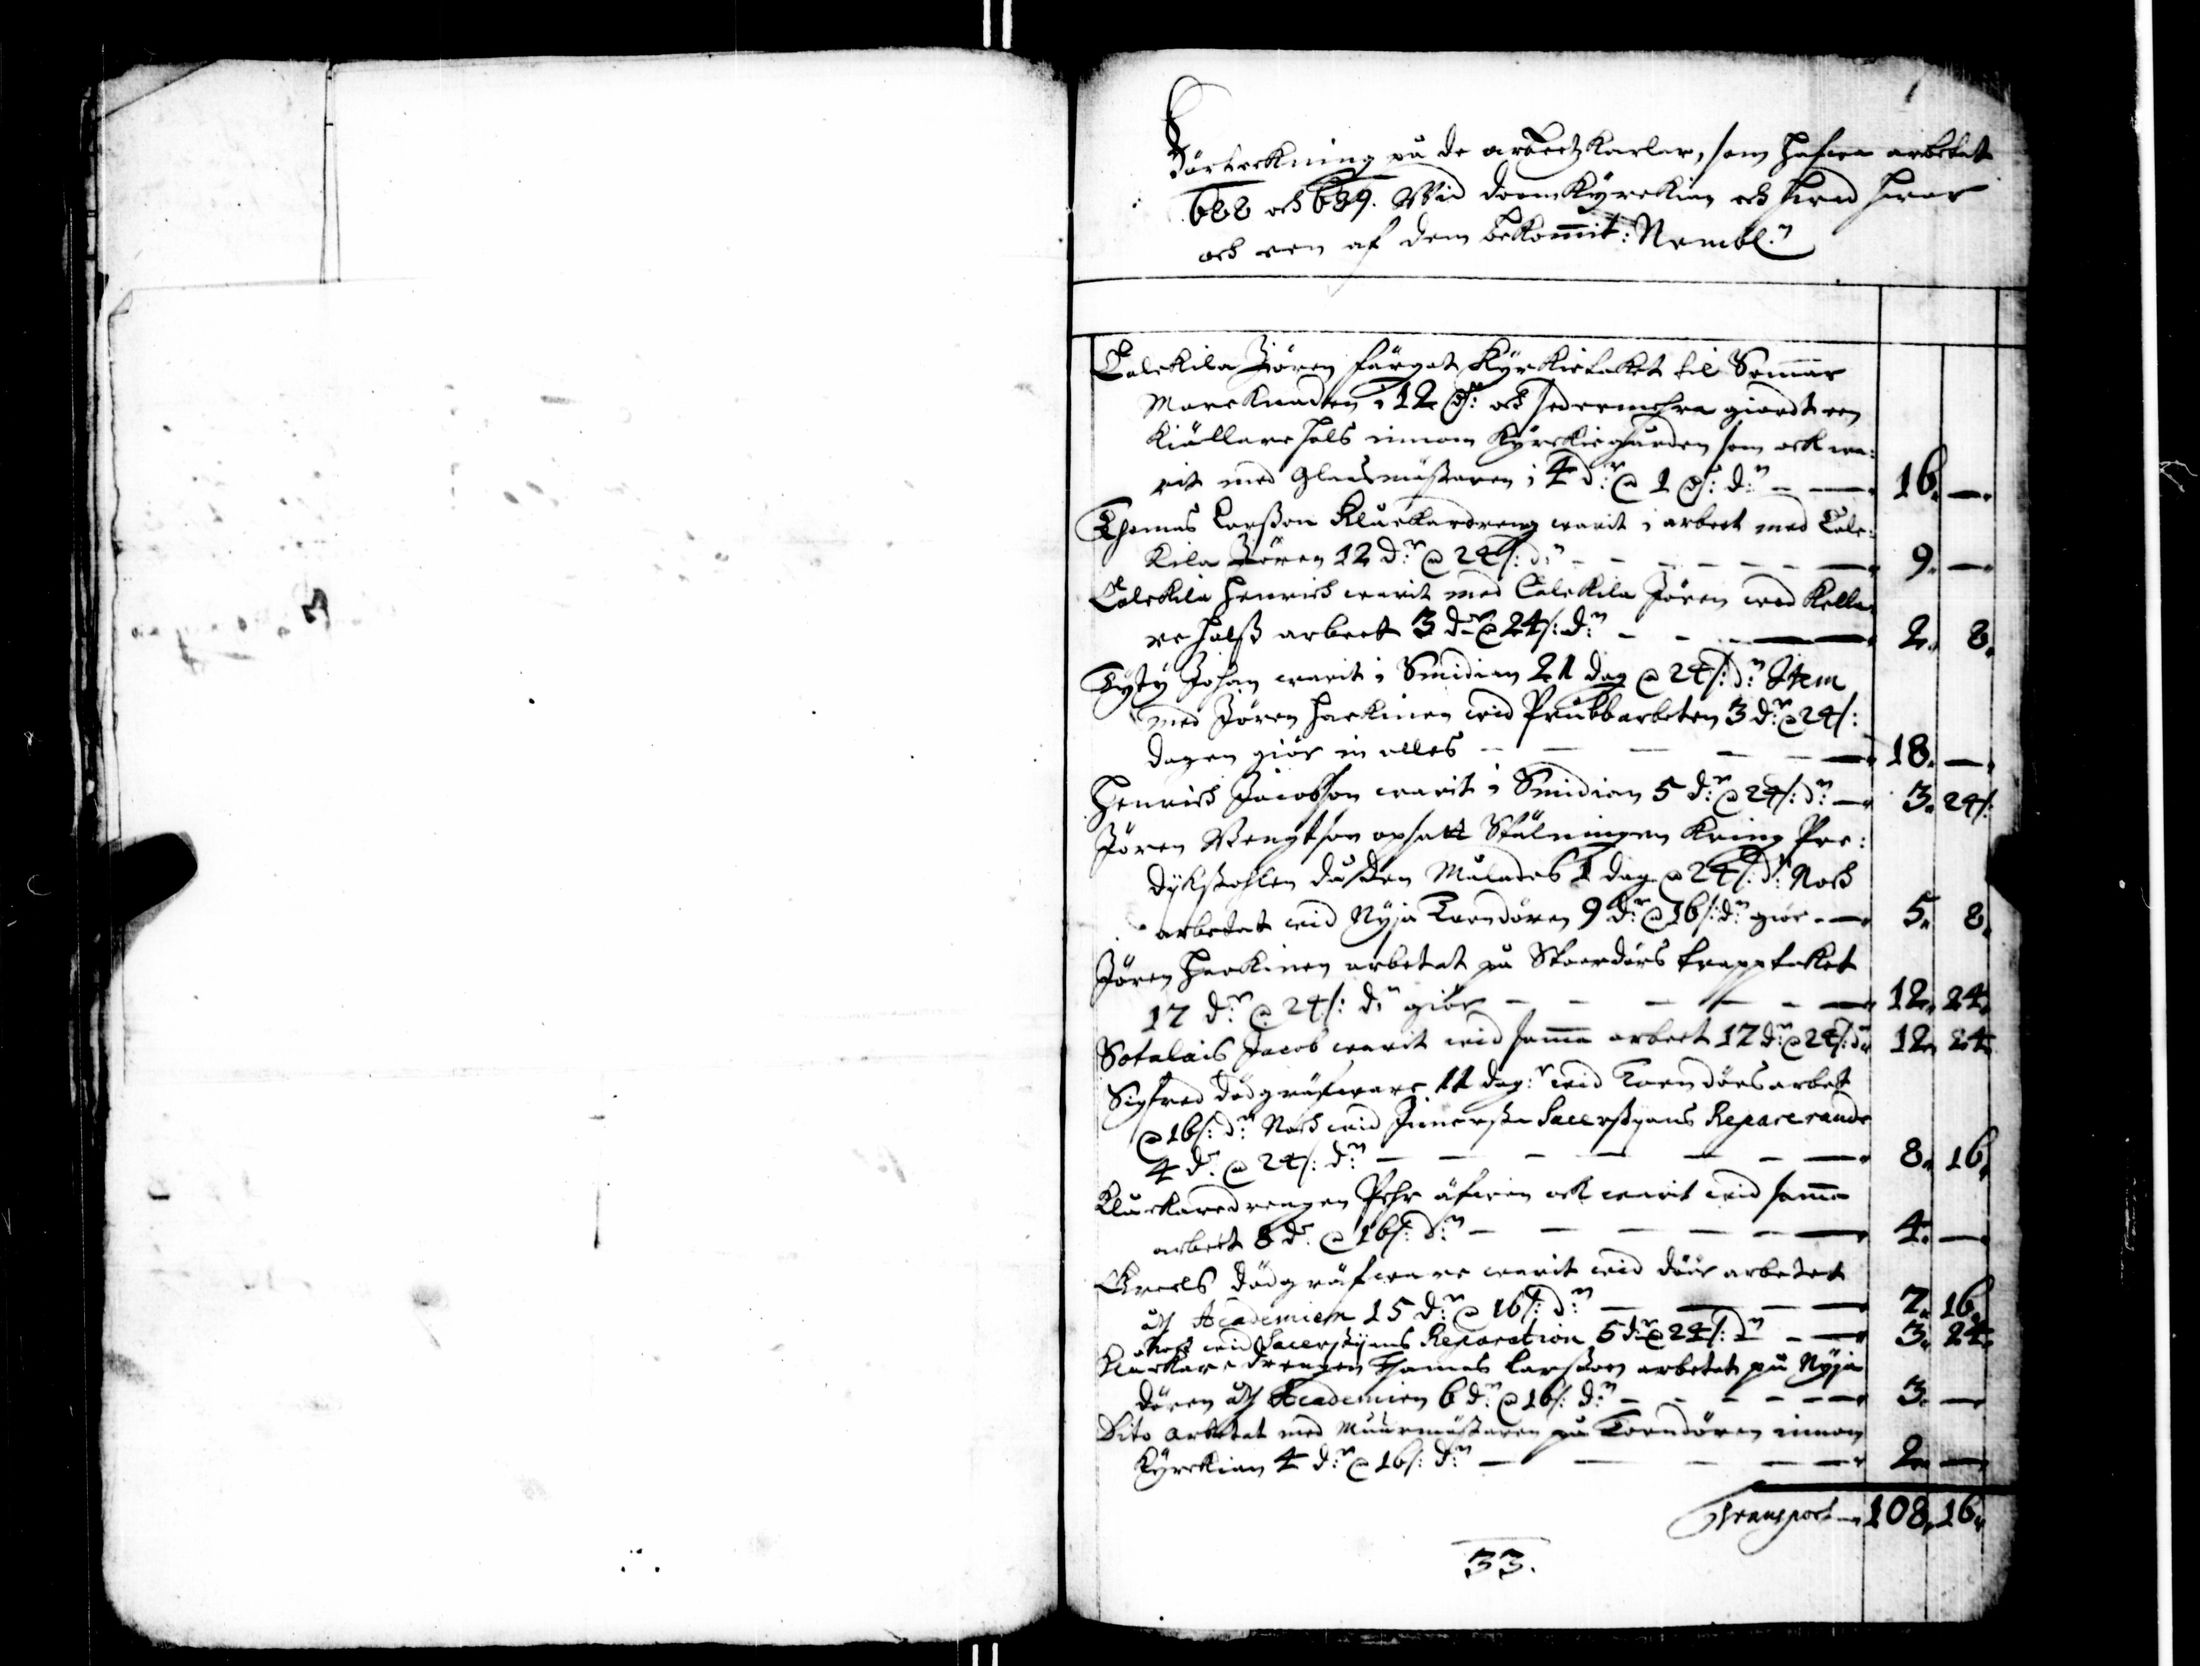 1
Förteckning på de arbetzkarlar, som hafwa arbetat
688 och 689. Wid doomkyrckian och hwad hwar
och een af dem bekommit: Nembl:n
Calckila Jören färgat kyrkietaket til Sommar
Marcknaden i 12 d: och sedermehra giordt een
kiällare hals innom kyrckiegården som ock wa:
rit med Glasmästaren i 4 d:r @ 1 d: d:n — 16. —
Thomas Larsson Kluckardreng warit i arbeet med Calc:
kila Jören 12 d:r @ 24 /: d:n — 9. —
Calckila Henrich warit med Calckila Jören wed kella:
re halss arbeet 3 d:r @ 24 /: d:n — 2. 8.
Tyty Johan warit i Smidian 21 dag @ 24 /: d:n Item
med Jören Harkinen wid Prubbarbeten 3 d:r @ 24 /:
dagen giör in alles — 18. —
Henrich Jacobsson warit i Smidian 5 d:r @ 24 /: d:n — 3. 24 /:
Jören Bengtson opsatt Stälningen kring Pre:
dykstohlen då den Målades 1 dag @ 24 /: d:n Noch
arbetat wid Nyja Torndören 9 d:r @ 16 /: d:n giör — 5. 8.
Jören Harkinen arbetat på Stoordörs trapptaket
17 d:r @ 24 /: d:n giör — 12. 24.
Sotalais Jacob warit wid samma arbeet 17 d:r @ 24 /: d:n 12. 24.
Sigfred dödgräfware 11 dag:r wid Torn dörs arbet
@ 16 /: d:n Noch wid Innersta Sacerstyans Reparerande
4 d:r @ 24 /: d:n — 8. 16.
Kluckaredrengen Pehr äfwen ock warit wid samma
arbeet 8 d:r @ 16 /: d:n — 4. —
Greels dödgräfware warit wid döör arbetet
åth Academien 15 d:r @ 16 /: d:n — 7. 16.
Noch wid Sacerstyans Reparation 5 d:r @ 24 /: d:n — 3. 24.
Kluckaredrengen Thomas Larsson arbetat på Nyja
dören åth Academien 6 d:r @ 16 /: d:n — 3. —
Dito arbetat med Muurmästaren på Torndören innom
kyrckian 4 d:r @ 16 /: d:n — 2. —
Transport — 108. 16.
33.